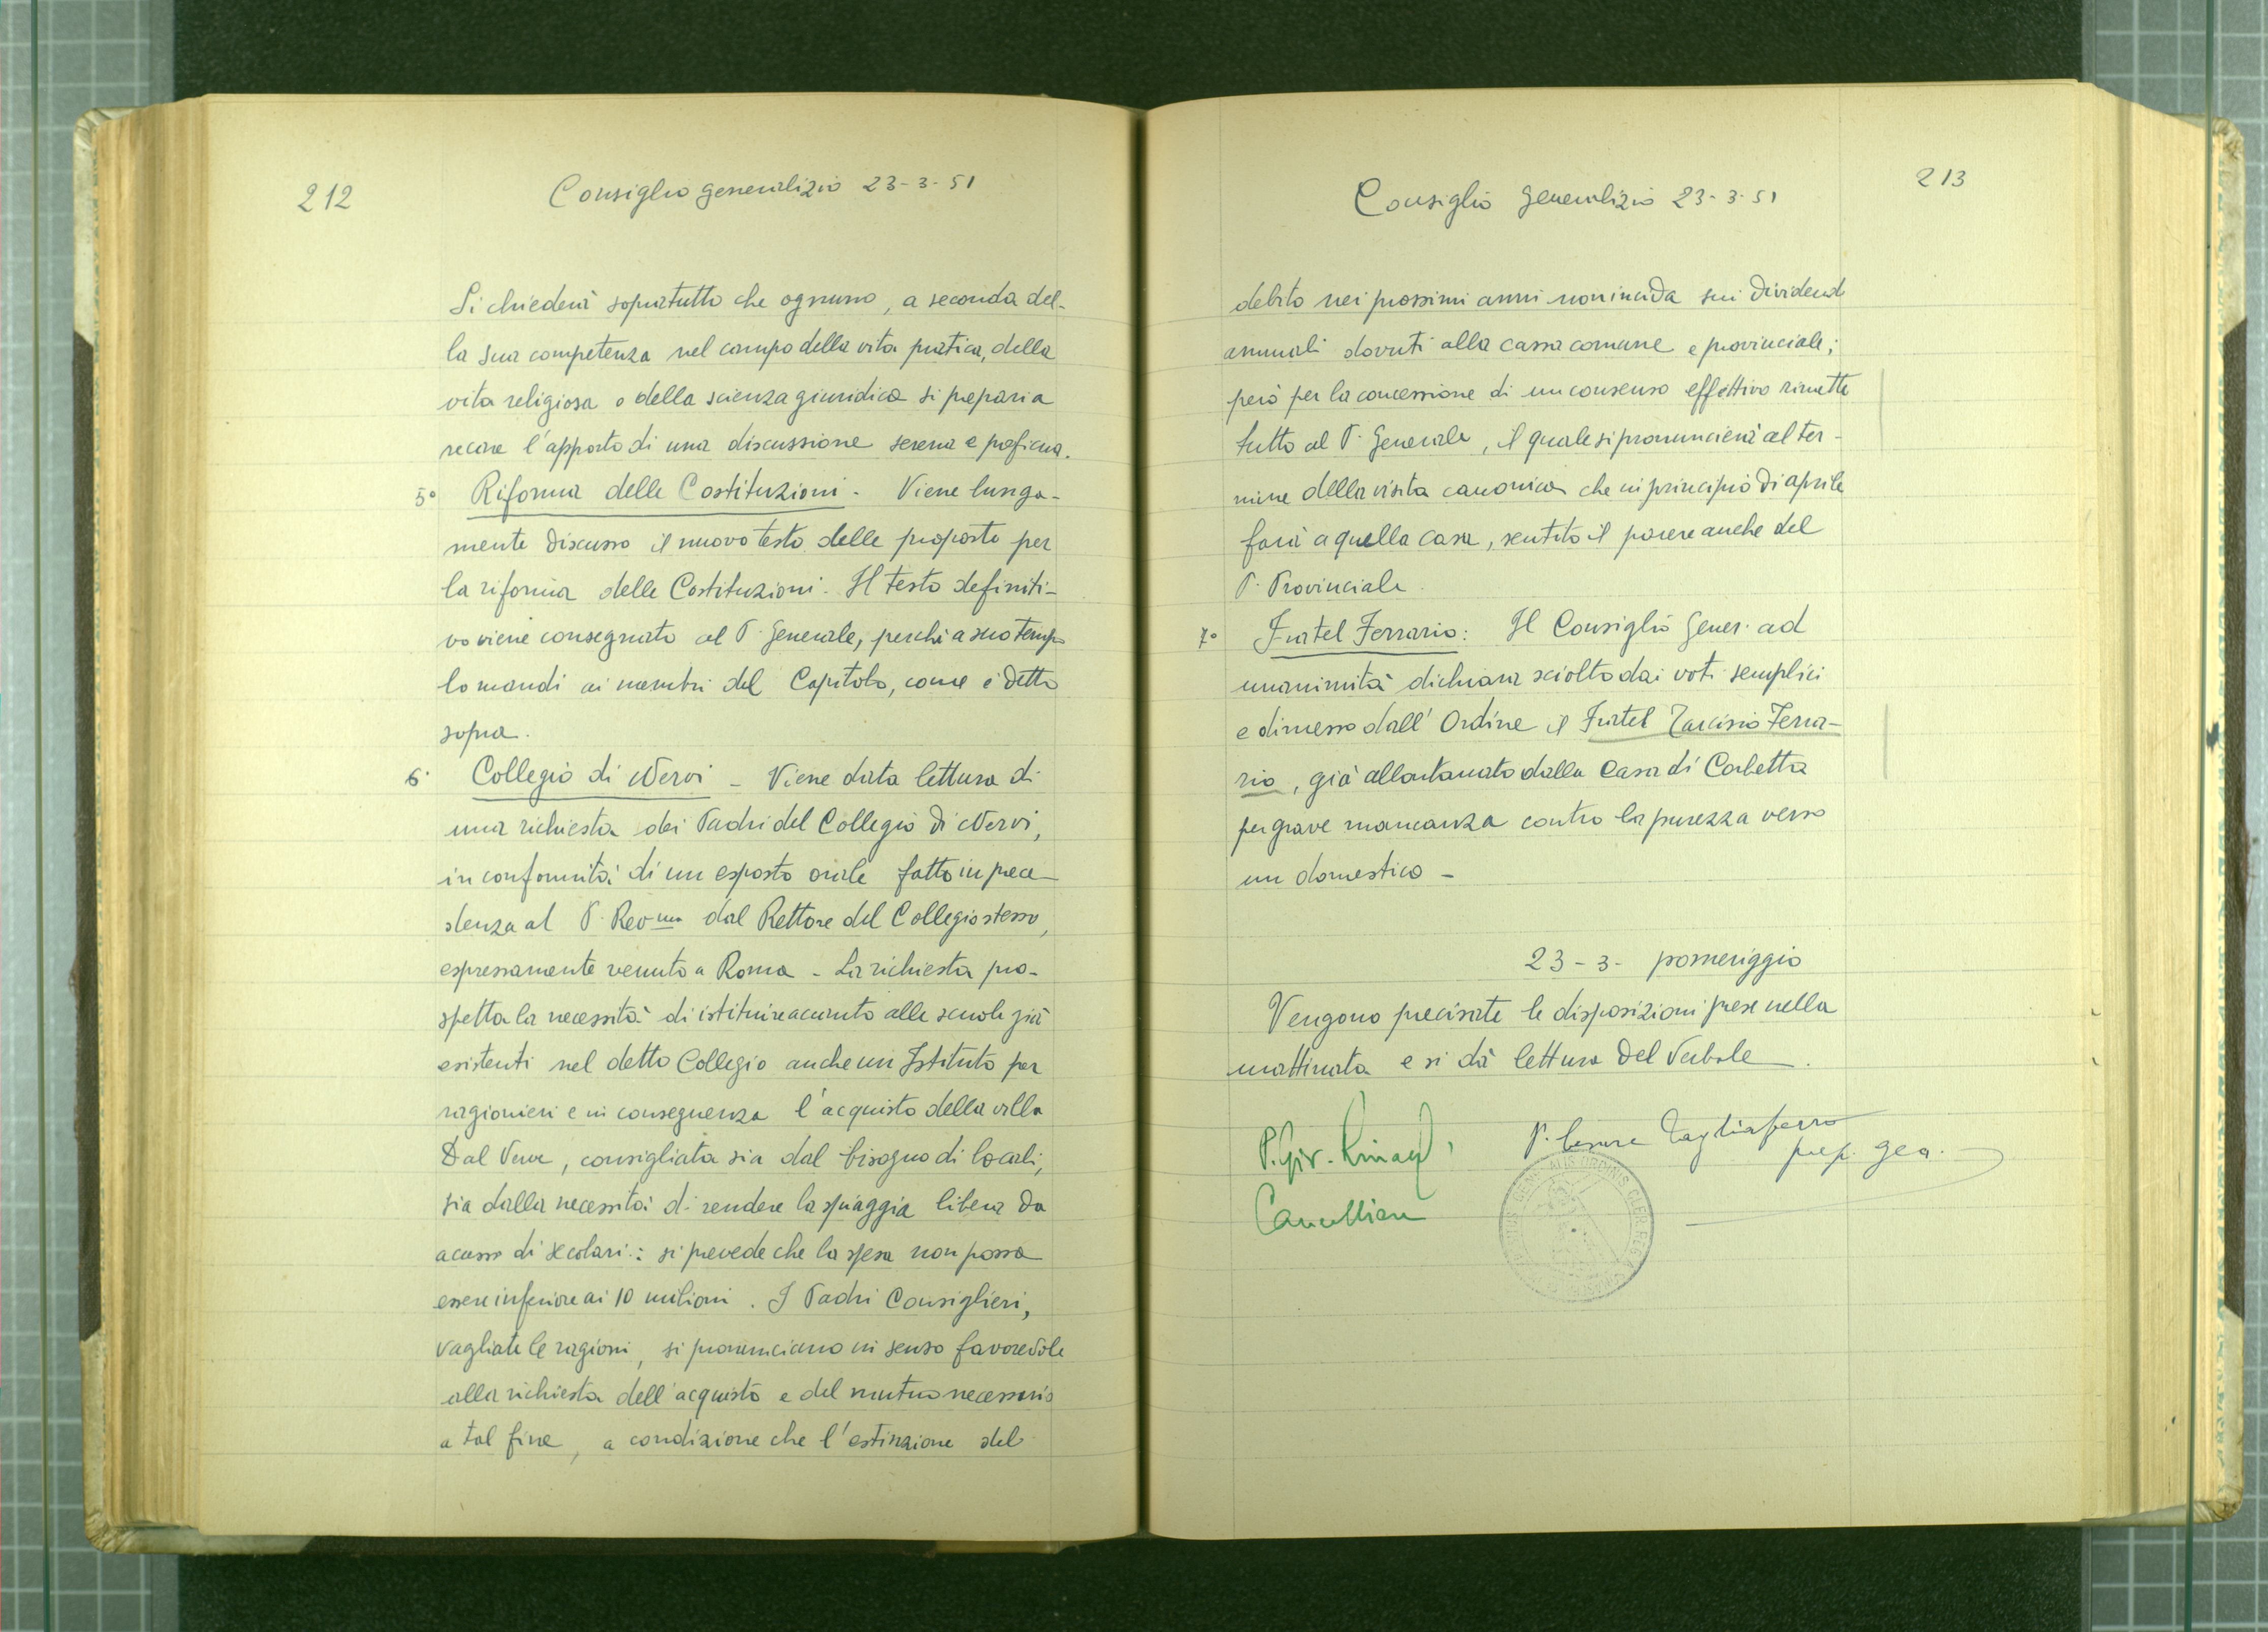 212
Consiglio generalizio 23-3-51
Si chiederà sopratutto che ognuno, a seconda del-
la sua competenza nel campo della vita pratica, della
vita religiosa o della scienza giuridica si prepari a
recare l'apporto di una discussione serena e proficua.
5° Riforma delle Costituzioni - Viene lunga-
mente discusso il nuovo testo delle proposte per
la riforma delle Costituzioni. Il testo definiti-
vo viene consegnato al P. Generale, perchè a suo tempo
lo mandi ai membri del Capitolo, come è detto
sopra.
6° Collegio di Nervi - Viene data lettura di
una richiesta dei Padri del Collegio di Nervi,
in conformità di un esposto orale fatto in prece-
denza al P. Rev.mo dal Rettore del Collegio stesso,
espressamente venuto a Roma - La richiesta pro-
spetta la necessità di istituire accanto alle scuole già
esistenti nel detto Collegio anche un Istituto per
ragionieri e in conseguenza l'acquisto della villa
Dal Verme, consigliata sia dal bisogno di locali,
sia dalla necessità di rendere la spiaggia libera da
accesso di secolari: si prevede che la spesa non possa
essere inferiore ai 10 milioni. I Padri Consiglieri,
vagliate le ragioni, si pronunciano in senso favorevole
alla richiesta dell'acquisto e del mutuo necessario
a tal fine, a condizione che l'estinzione del
213
Consiglio generalizio 23-3-51
debito nei prossimi anni non incida sui dividendi
annuali dovuti alla cassa comune e provinciale;
però per la concessione di un consenso effettivo rimette
tutto al P. Generale, il quale si pronuncierà al ter-
mine della visita canonica che in principio di aprile
farà a quella casa, sentito il parere anche del
P. Provinciale.
7° Fratel Ferrario: Il Consiglio Gener. ad
unanimità dichiara sciolto dai voti semplici
e dimesso dall'Ordine il Fratel Tarcisio Ferra-
rio, già allontanato dalla Casa di Corbetta
per grave mancanza contro la purezza verso
un domestico -
23-3- pomeriggio
Vengono precisate le disposizioni prese nella
mattinata e si dà lettura del Verbale.
P. Cesare Tagliaferro
prep. gen.
P. Giv.
Cancelliere
ORDINIS CLER. REG.